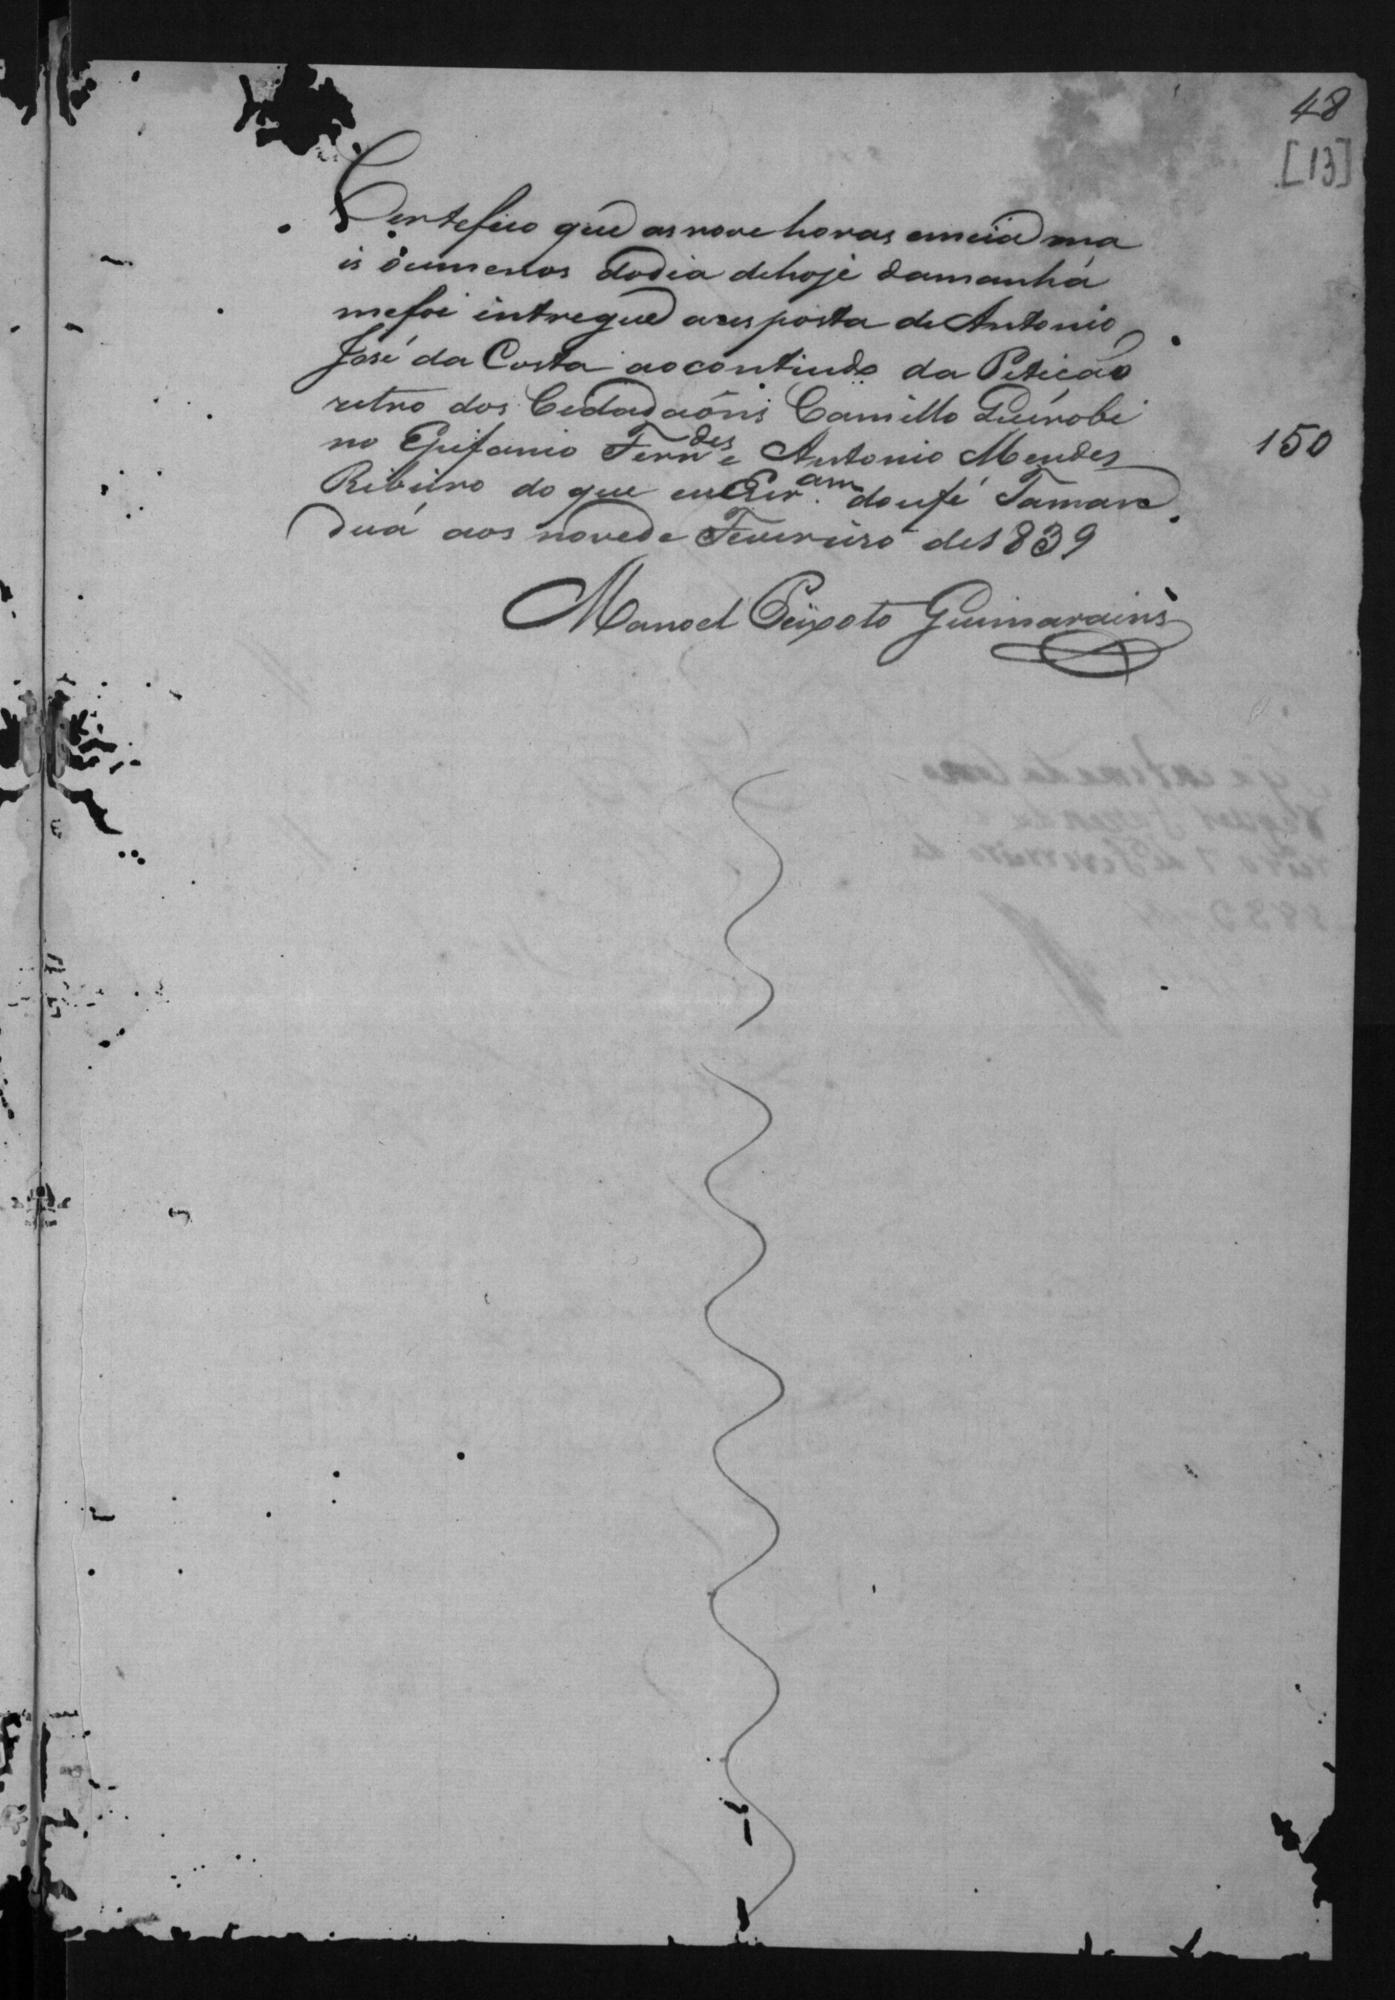 48
[13]
Certefico que as nove horas emeia ma
is óumenos dodia dehoje damanhá
mefoi intregue aresposta de Antonio
José da Costa aocontiudo da Peticáo
retro dos Cedadaóins Camillo
no Epifanio Fern.des e Antonio Mendes
150
Ribeiro do que eu Escr.am doufé Taman
duá aos novede Fevereiro de1839
Manoel Peixoto Guimarains